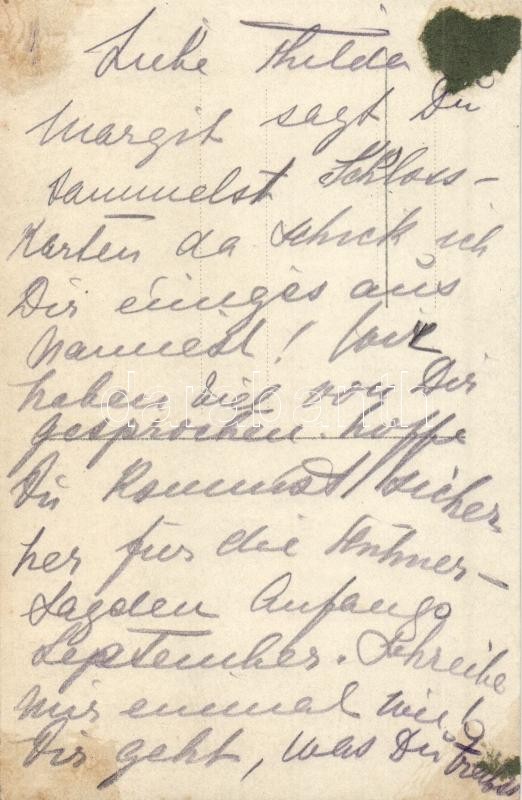 Liebe Thilda
Margit sagt Du
sammelst Schloss-
karten da schick ich
Dir einiges aus
Namiest! Wir
haben viel von Dir
gesprochen. hoffe
Du kommst sicher
her für die Hühner-
Jagden Anfangs
September. Schreibe
mir einmal wie's
Dir geht, was Du treibst
darabanth